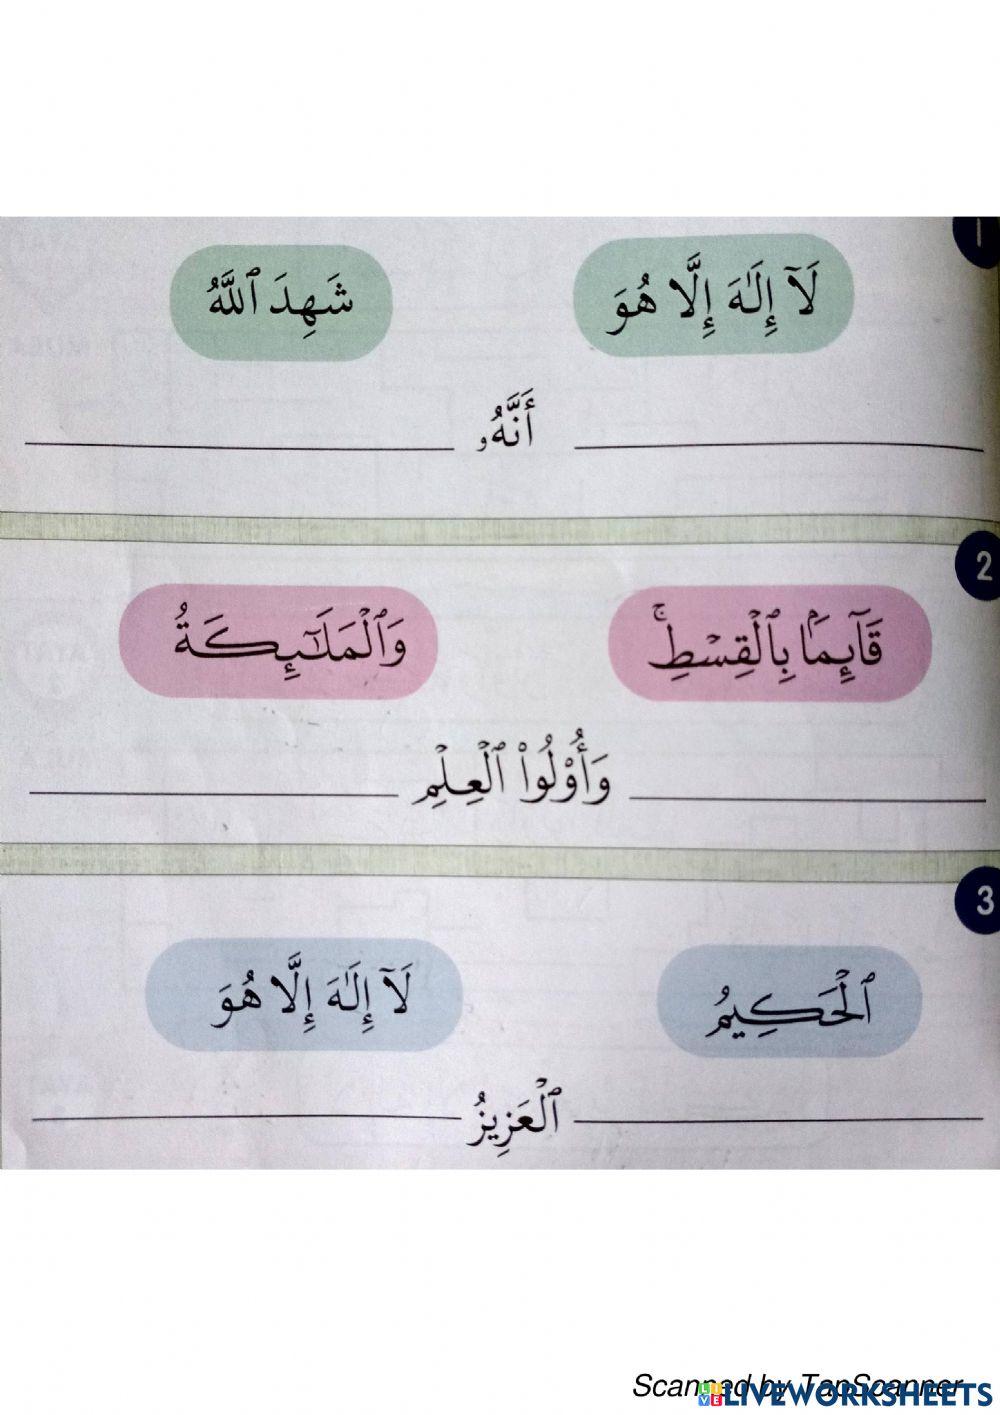 1
لَآ إِلَـٰهَ إِلَّا هُوَ شَهِدَ ٱللَّهُ
أَنَّهُۥ
2
قَآئِمَۢا بِٱلْقِسْطِ ۚ وَٱلْمَلَـٰٓئِكَةُ
وَأُو۟لُوا۟ ٱلْعِلْمِ
3
ٱلْحَكِيمُ لَآ إِلَـٰهَ إِلَّا هُوَ
ٱلْعَزِيزُ
Scanned by TapScanner
LIVEWORKSHEETS